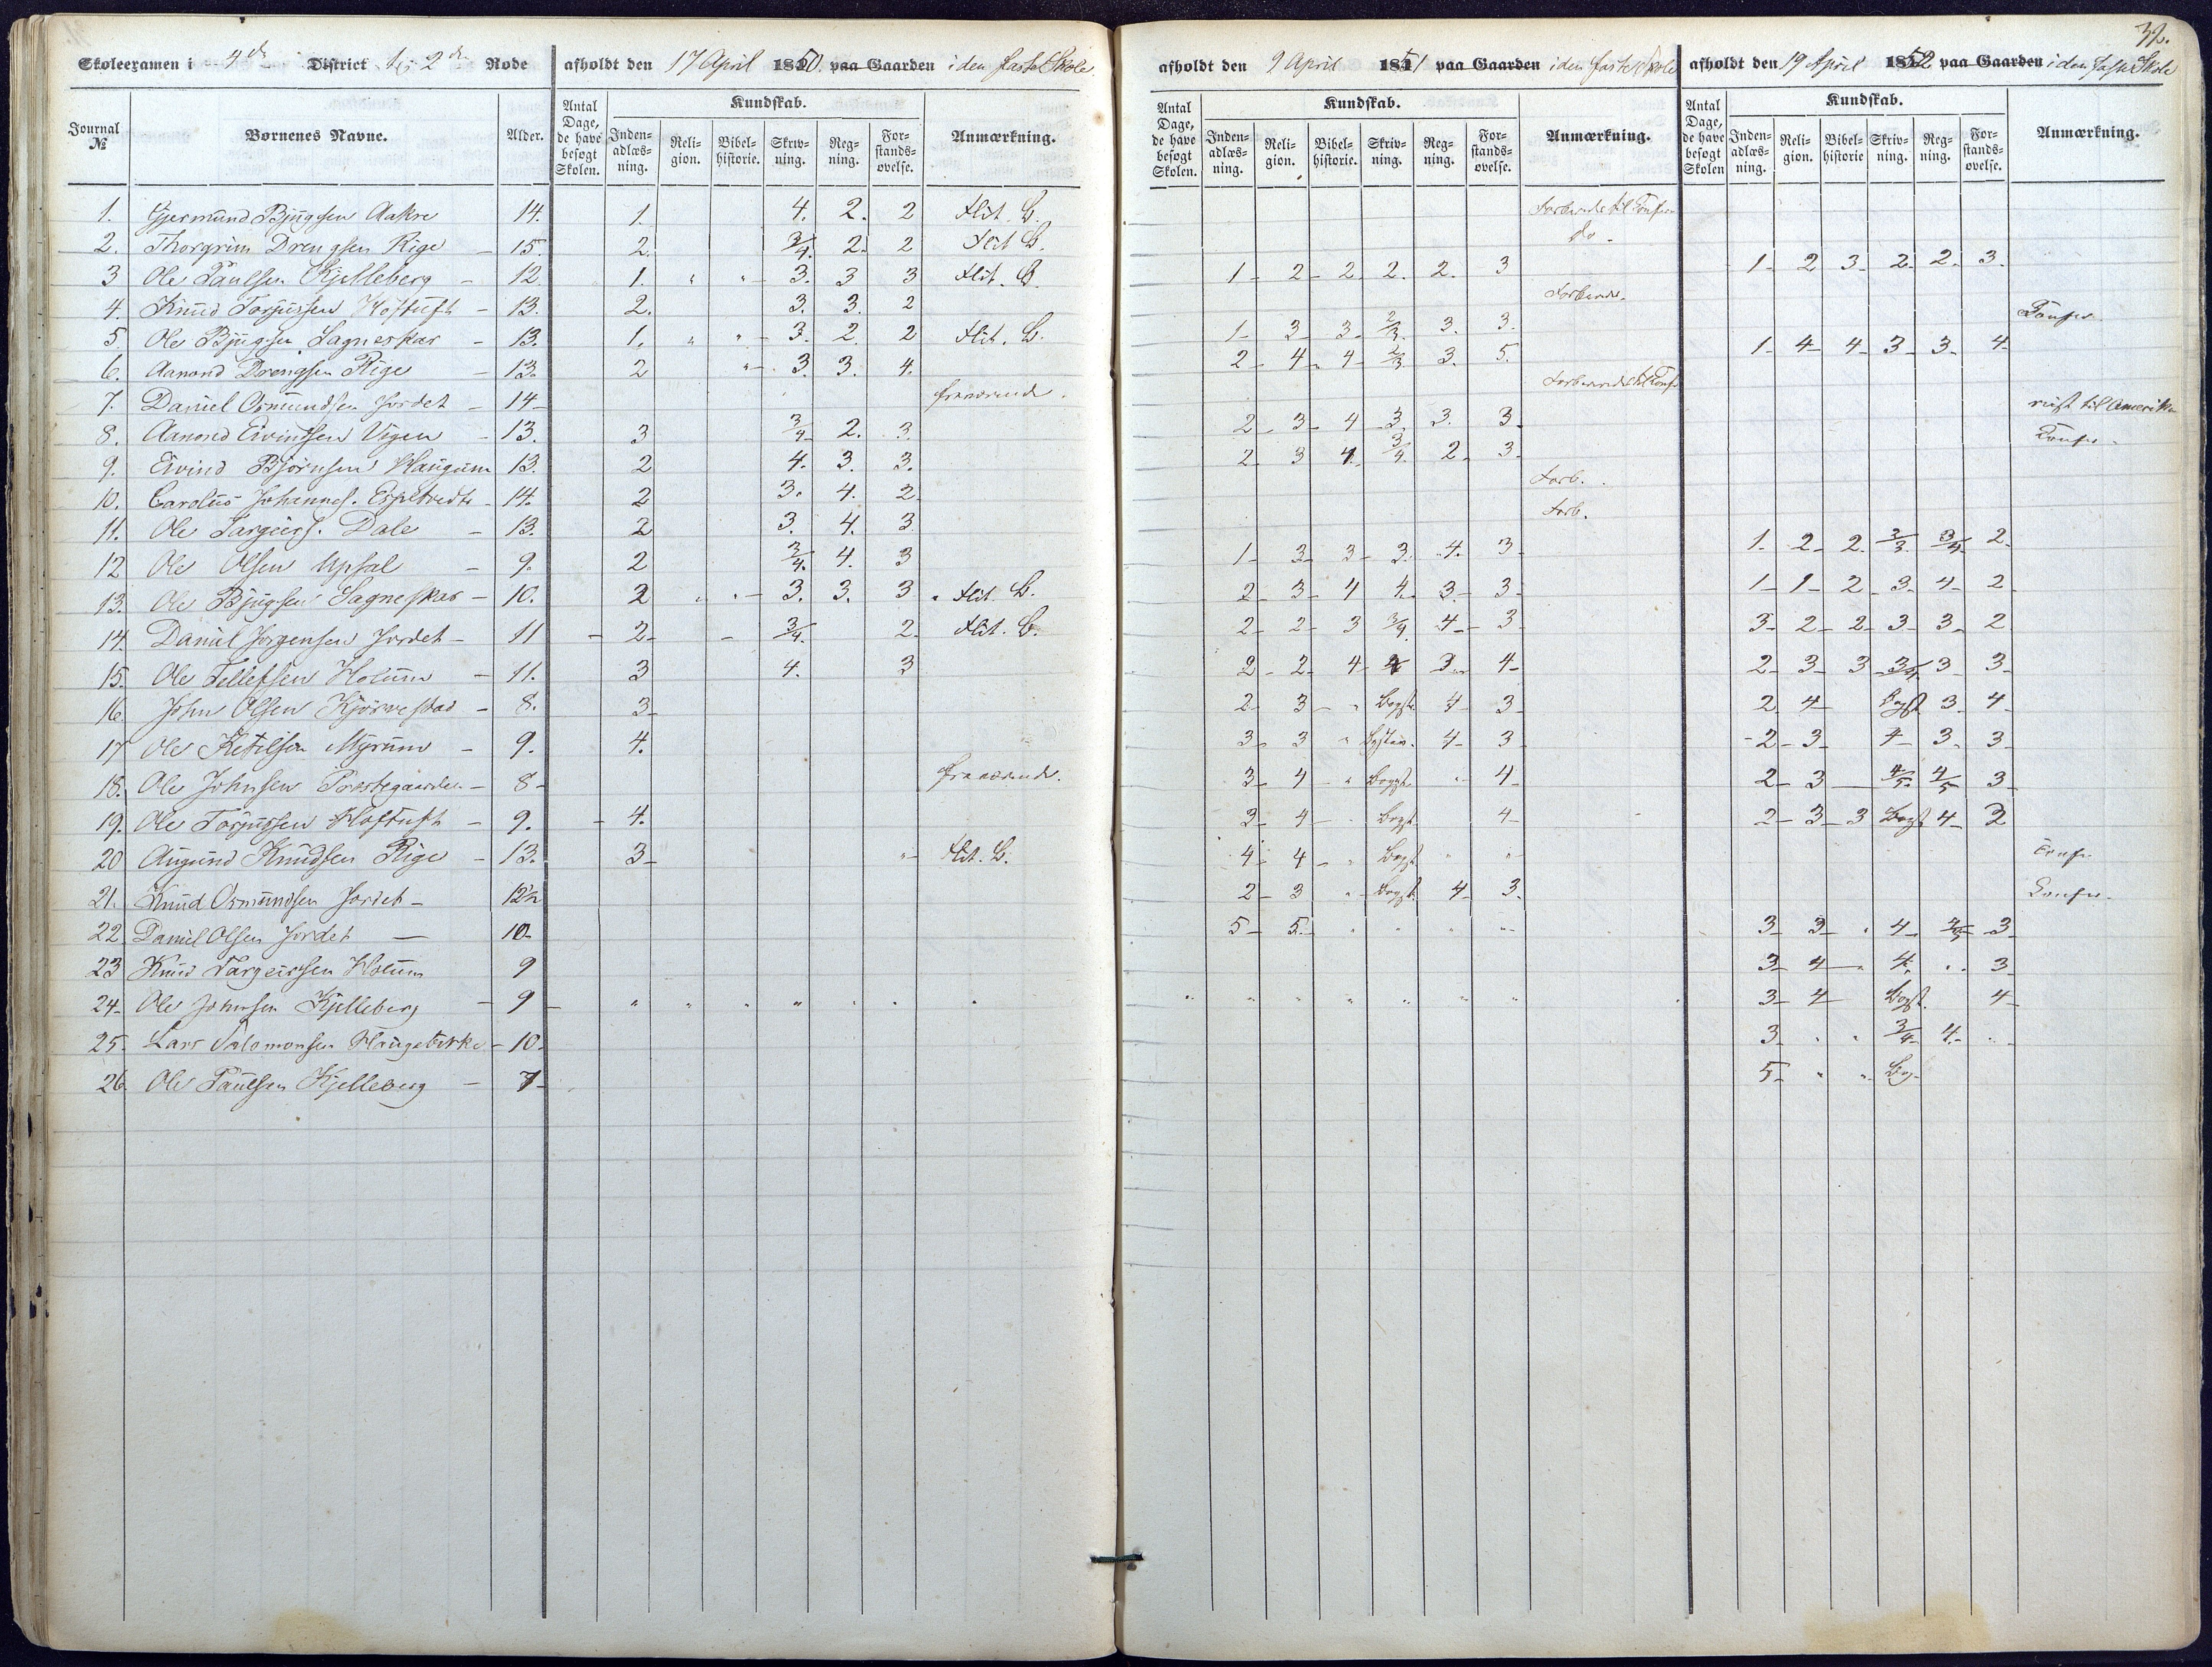 32.
Skoleexamen i 4de District 1ste 2den Rode afholdt den 17 April 1850 paa Gaarden i den faste Skole
afholdt den 9 April 1851 paa Gaarden i den faste Skole
afholdt den 19 April 1852 paa Gaarden i den faste Skole
Journal № Børnenes Navne. Alder. Antal Dage, de have besøgt Skolen. Kundskab. Inden-adlæs-ning. Reli-gion. Bibel-historie. Skriv-ning. Reg-ning. For-stands-øvelse. Anmærkning.
Antal Dage, de have besøgt Skolen. Kundskab. Inden-adlæs-ning. Reli-gion. Bibel-historie. Skriv-ning. Reg-ning. For-stands-øvelse. Anmærkning.
Antal Dage, de have besøgt Skolen Kundskab. Inden-adlæs-ning. Reli-gion. Bibel-historie Skriv-ning. Reg-ning. For-stands-øvelse. Anmærkning.
1. Gjermund Bjugsen Aakre 14. 1. 4. 2. 2 Flit. B.
2. Thorgrim Drengsen Rige - 15. 2. 3/4. 2. 2 Flit B. do -
3 Ole Paulsen Kjelleberg - 12 1. " " - 3. 3 3 Flit. B. 1 - 2 - 2 2. 2. 3 1 - 2 3 - 2. 2. 3.
4. Knud Torjussen Hoftuft - 13. 2. 3. 3. 2 Confir.
5 Ole Bjugsen Sagneskar - 13. 1. " " - 3. 2. 2 Flit. B. 1 - 3 - 3 - 2/3. 3. 3.
6. Aanond Drengsen Rige - 13. 2 " - 3. 3. 4. 2 - 4 - 4 - 2/3 3. 5. 1 - 4 - 4 - 3 - 3. 4-
7. Daniel Osmundsen Jordet - 14- fraværende.
8. Aanond Eivindsen Vigen - 13. 3 3/4 2. 3. 2 - 3 - 4 - 3. 3. 3 - reist til Amerika
9. Eivind Bjørnsen Haugum 13. 2 4. 3. 3. 2 - 3 4. - 3/4. 2 - 3 - Confir.
10. Carolus Johannes. Espetvedt - 14. 2 3. 4. 2 Forb.
11. Ole Targeirs. Dale - 13. 2 3. 4. 3 Forb.
12 Ole Olsen Upsal - 9. 2 3/4. 4. 3 1 - 3 - 3 - 3. 4. 3 - 1. 2 - 2. 2/3. 3/4. 2 -
13. Ole Bjugsen Sagneskar - 10. 2 " " - 3. 3. 3 " Flit. B. 2 - 3 - 4 4. 3 - 3 - 1 - 1 - 2 - 3. 4 - 2
14. Daniel Jørgensen Jordet - 11 - 2 - - 3/4. 2 - Flit. B. 2 - 2 - 3 3/4. 4 - 3 3 - 2 - 2 - 3 - 3 - 2
15. Ole Tellefsen Holum - 11. 3 4. 3 2 - 2 - 4 - 4 3. 4 - 2 - 3 - 3 3/4 3 - 3 -
16. John Olsen Kjørvestad - 8. 3 - 2 - 3 - " Bogst. 4 - 3 - 2 4 - Bogst. 3 - 4 -
17 Ole Ketilsen Myrum - 9. 4. 3 - 3 " 4 - 3 - 2 - 3 - 4 - 3. 3
18. Ole Johnsen Præstegaarden - 8 - fraværende. 3 - 4 - " Bogst. " 4 - 2 - 3 - 4/5. 4/5 3 -
19. Ole Torjussen Hoftuft - 9. - 4. 3 - 4 - " Bogst. 4 - 2 - 3 - 3 Bogst 4 - 2
20 Augund Knudsen Rige - 13. 3 - " - Flit. B. 4 - 4 - " Bogst. " " Confir
21. Knud Osmundsen Jordet - 12½ 2 - 3 " - Bogst. 4 - 3. Confir.
22. Daniel Olsen Jordet - 10 - 5 - 5. - " " " " 3 - 3 - " 4 - 4/5 - 3
23 Knud Targeirsen Holum 9 3 - 4 - " 4. " " 3
24 - Ole Johnsen Kjelleberg - 9 - " " " " " " " " " " " " " " 3 - 4 Bogst. 4 -
25. Lars Salomonsen Haugebirke - 10. 3 " " 3/4 - 4. - "
26. Ole Paulsen Kjelleberg - 7 - 5 - " " Bog.